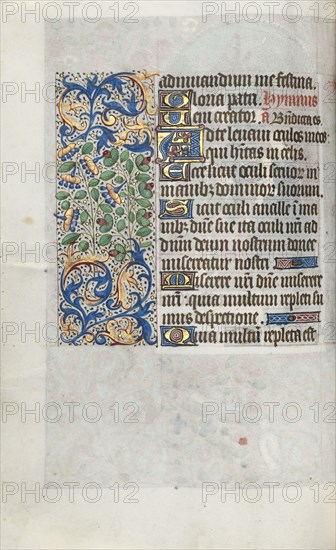 adiuuandum me festina.
Gloria patri. Hymnus
Veni creator. a Benedicta es
Ad te leuaui oculos meos
qui habitas in celis.
Ecce sicut oculi seruorum in
manibus dominorum suorum.
Sicut oculi ancille in ma
nibus dñe sue ita oculi nri ad
dnm deum nostrum donec
misereatur nostri.
Miserere nri dñe miserere
nri: quia multum repleti su
mus despectione.
Quia multum repleta est
PHOTO 12